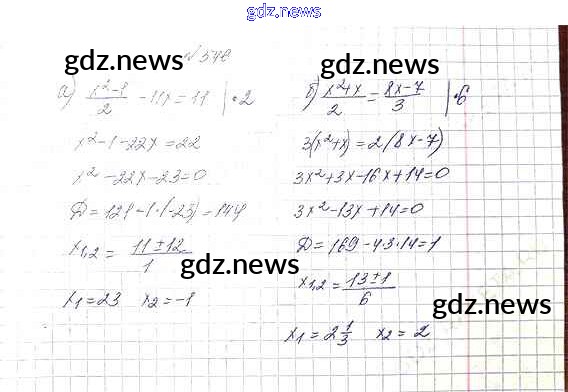 gdz.news
№ 546
gdz.news
gdz.news
а) x²-1/2 - 11x = 11 | • 2
x² - 1 - 22x = 22
x² - 22x - 23 = 0
D = 121 - 1·(-23) = 144
x₁,₂ = 11 ± 12 / 1
gdz.news
x₁ = 23 x₂ = -1
б) x²+x/2 = 8x-7/3 | • 6
3(x²+x) = 2(8x-7)
gdz.news
3x²+3x-16x+14=0
3x²-13x+14=0
D = 169 - 4·3·14 = 1
x₁,₂ = 13 ± 1 / 6
gdz.news
x₁ = 2 1/3 x₂ = 2